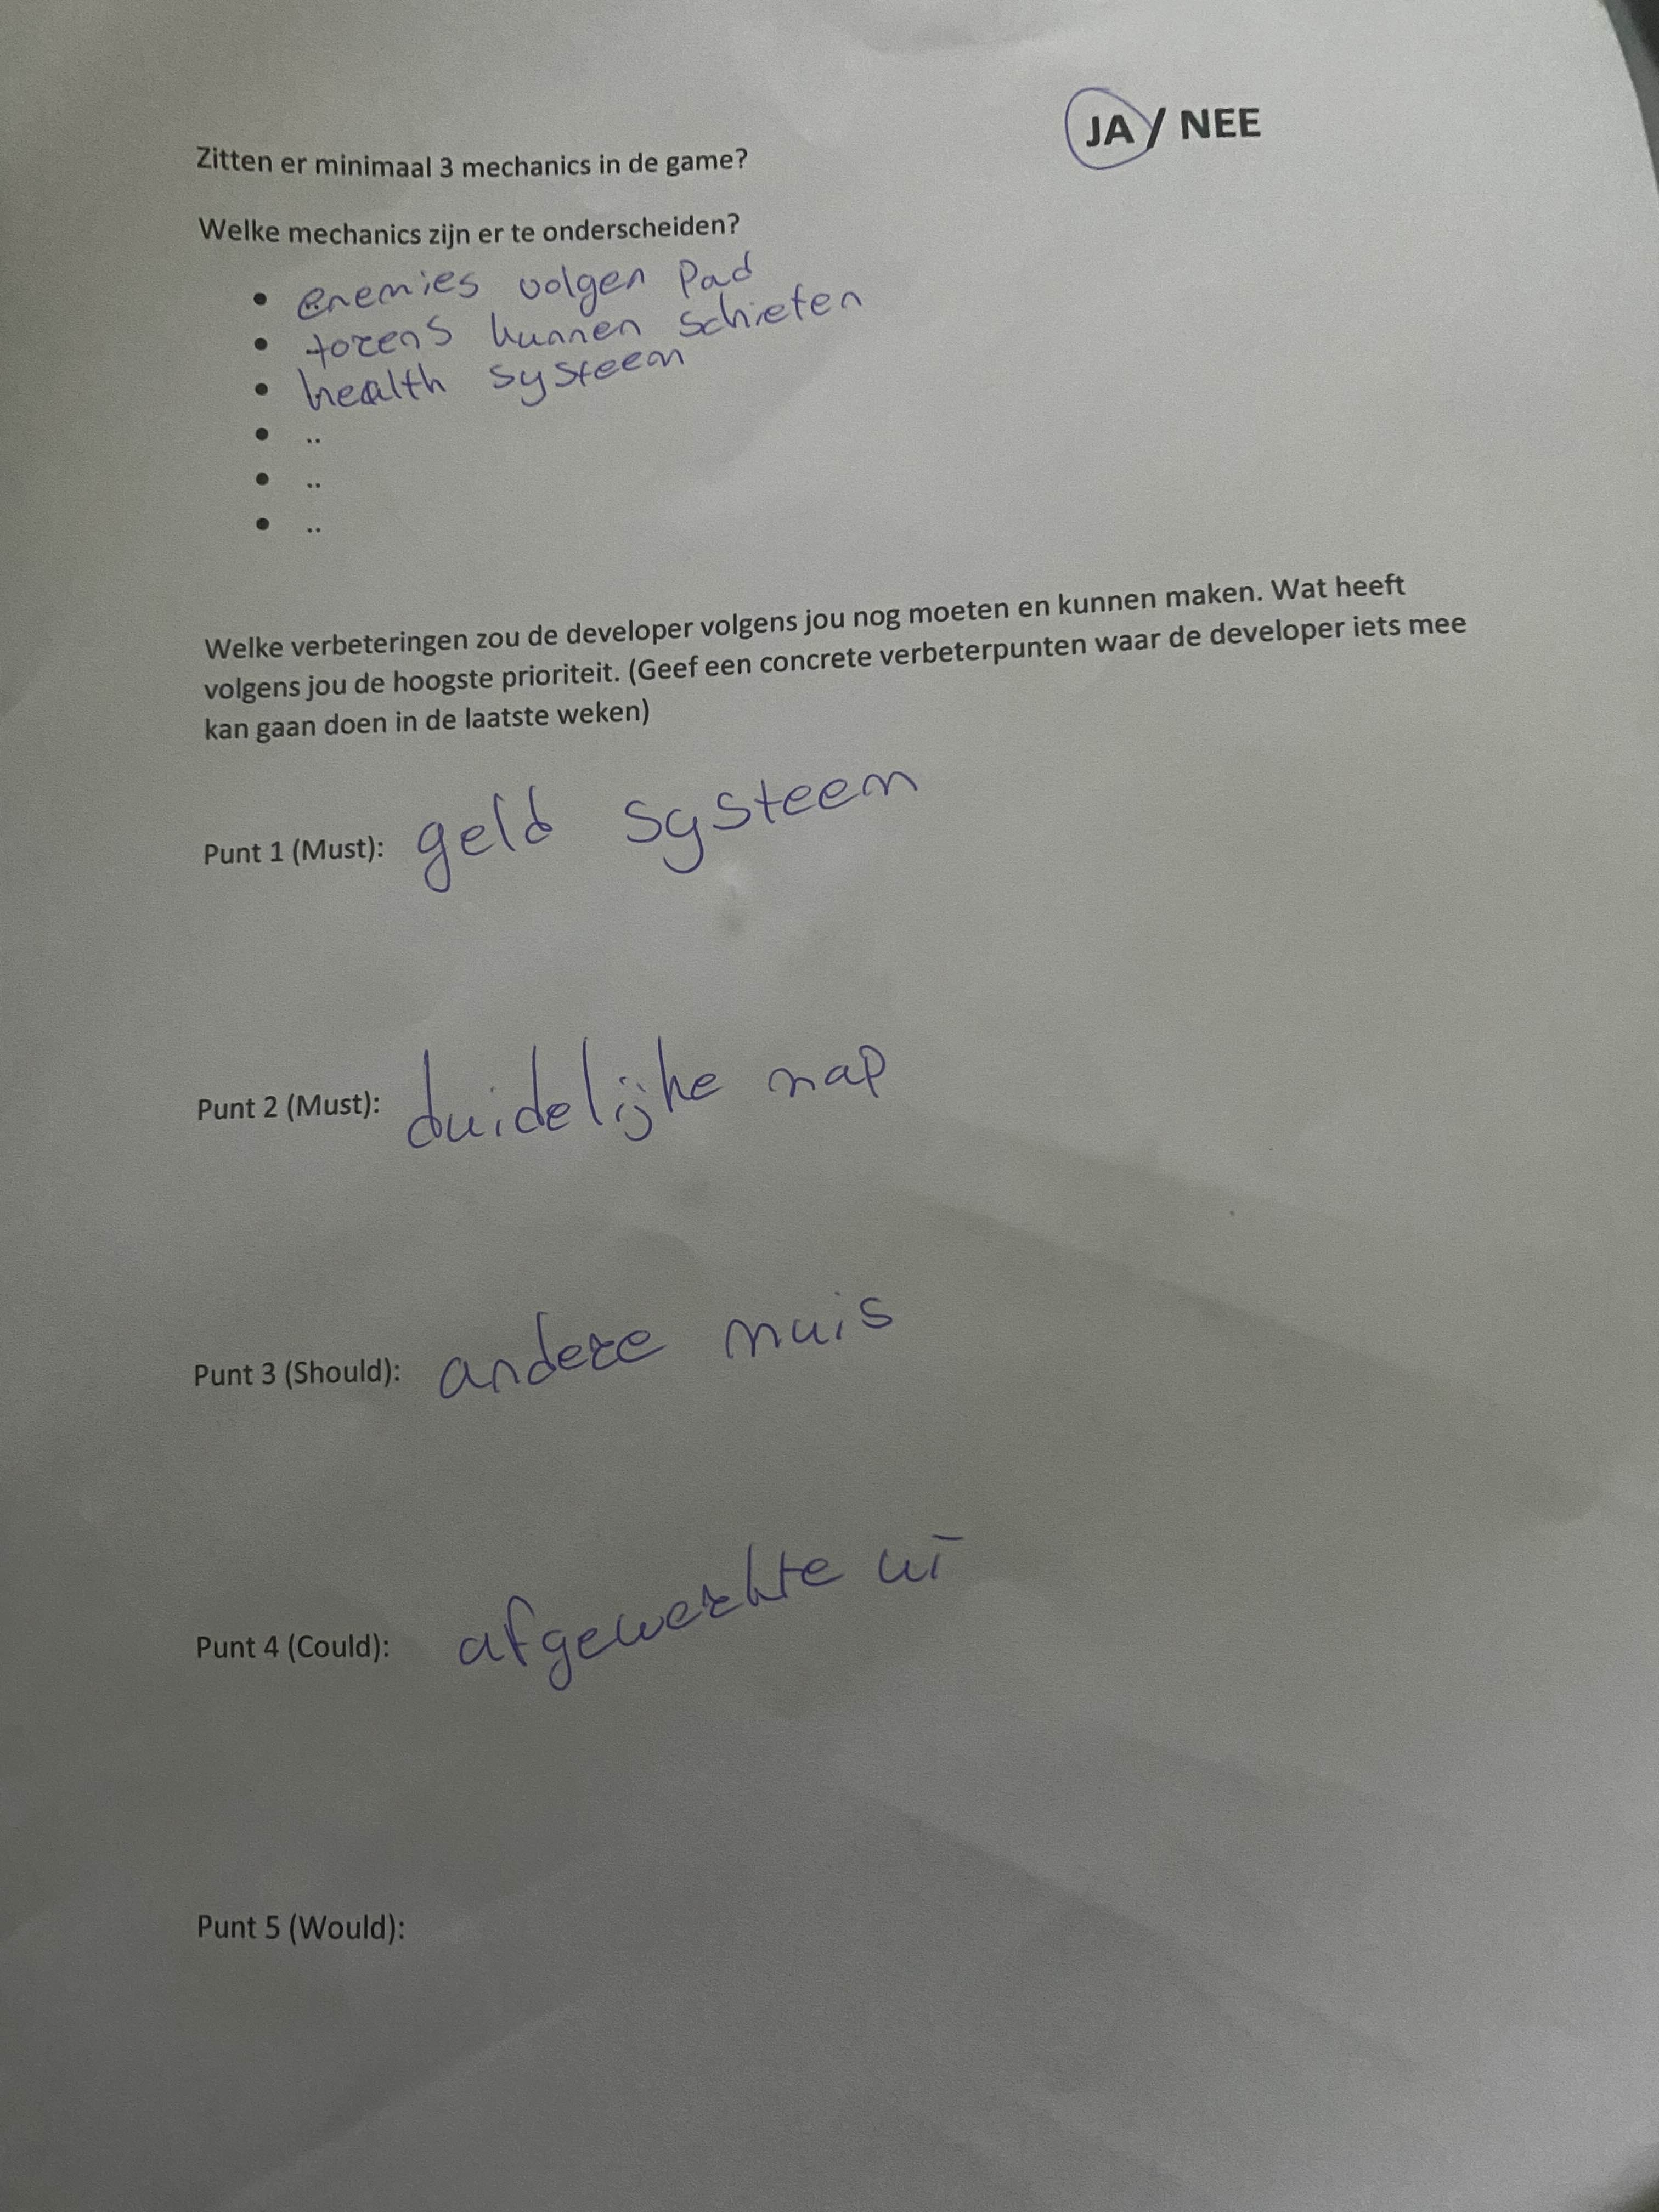 JA / NEE
Zitten er minimaal 3 mechanics in de game?
Welke mechanics zijn er te onderscheiden?
• enemies volgen Pad
• torens kunnen schieten
• health systeem
• ..
• ..
• ..
Welke verbeteringen zou de developer volgens jou nog moeten en kunnen maken. Wat heeft
volgens jou de hoogste prioriteit. (Geef een concrete verbeterpunten waar de developer iets mee
kan gaan doen in de laatste weken)
Punt 1 (Must): geld systeem
Punt 2 (Must): duidelijke map
Punt 3 (Should): andere muis
Punt 4 (Could): afgewerkte ui
Punt 5 (Would):